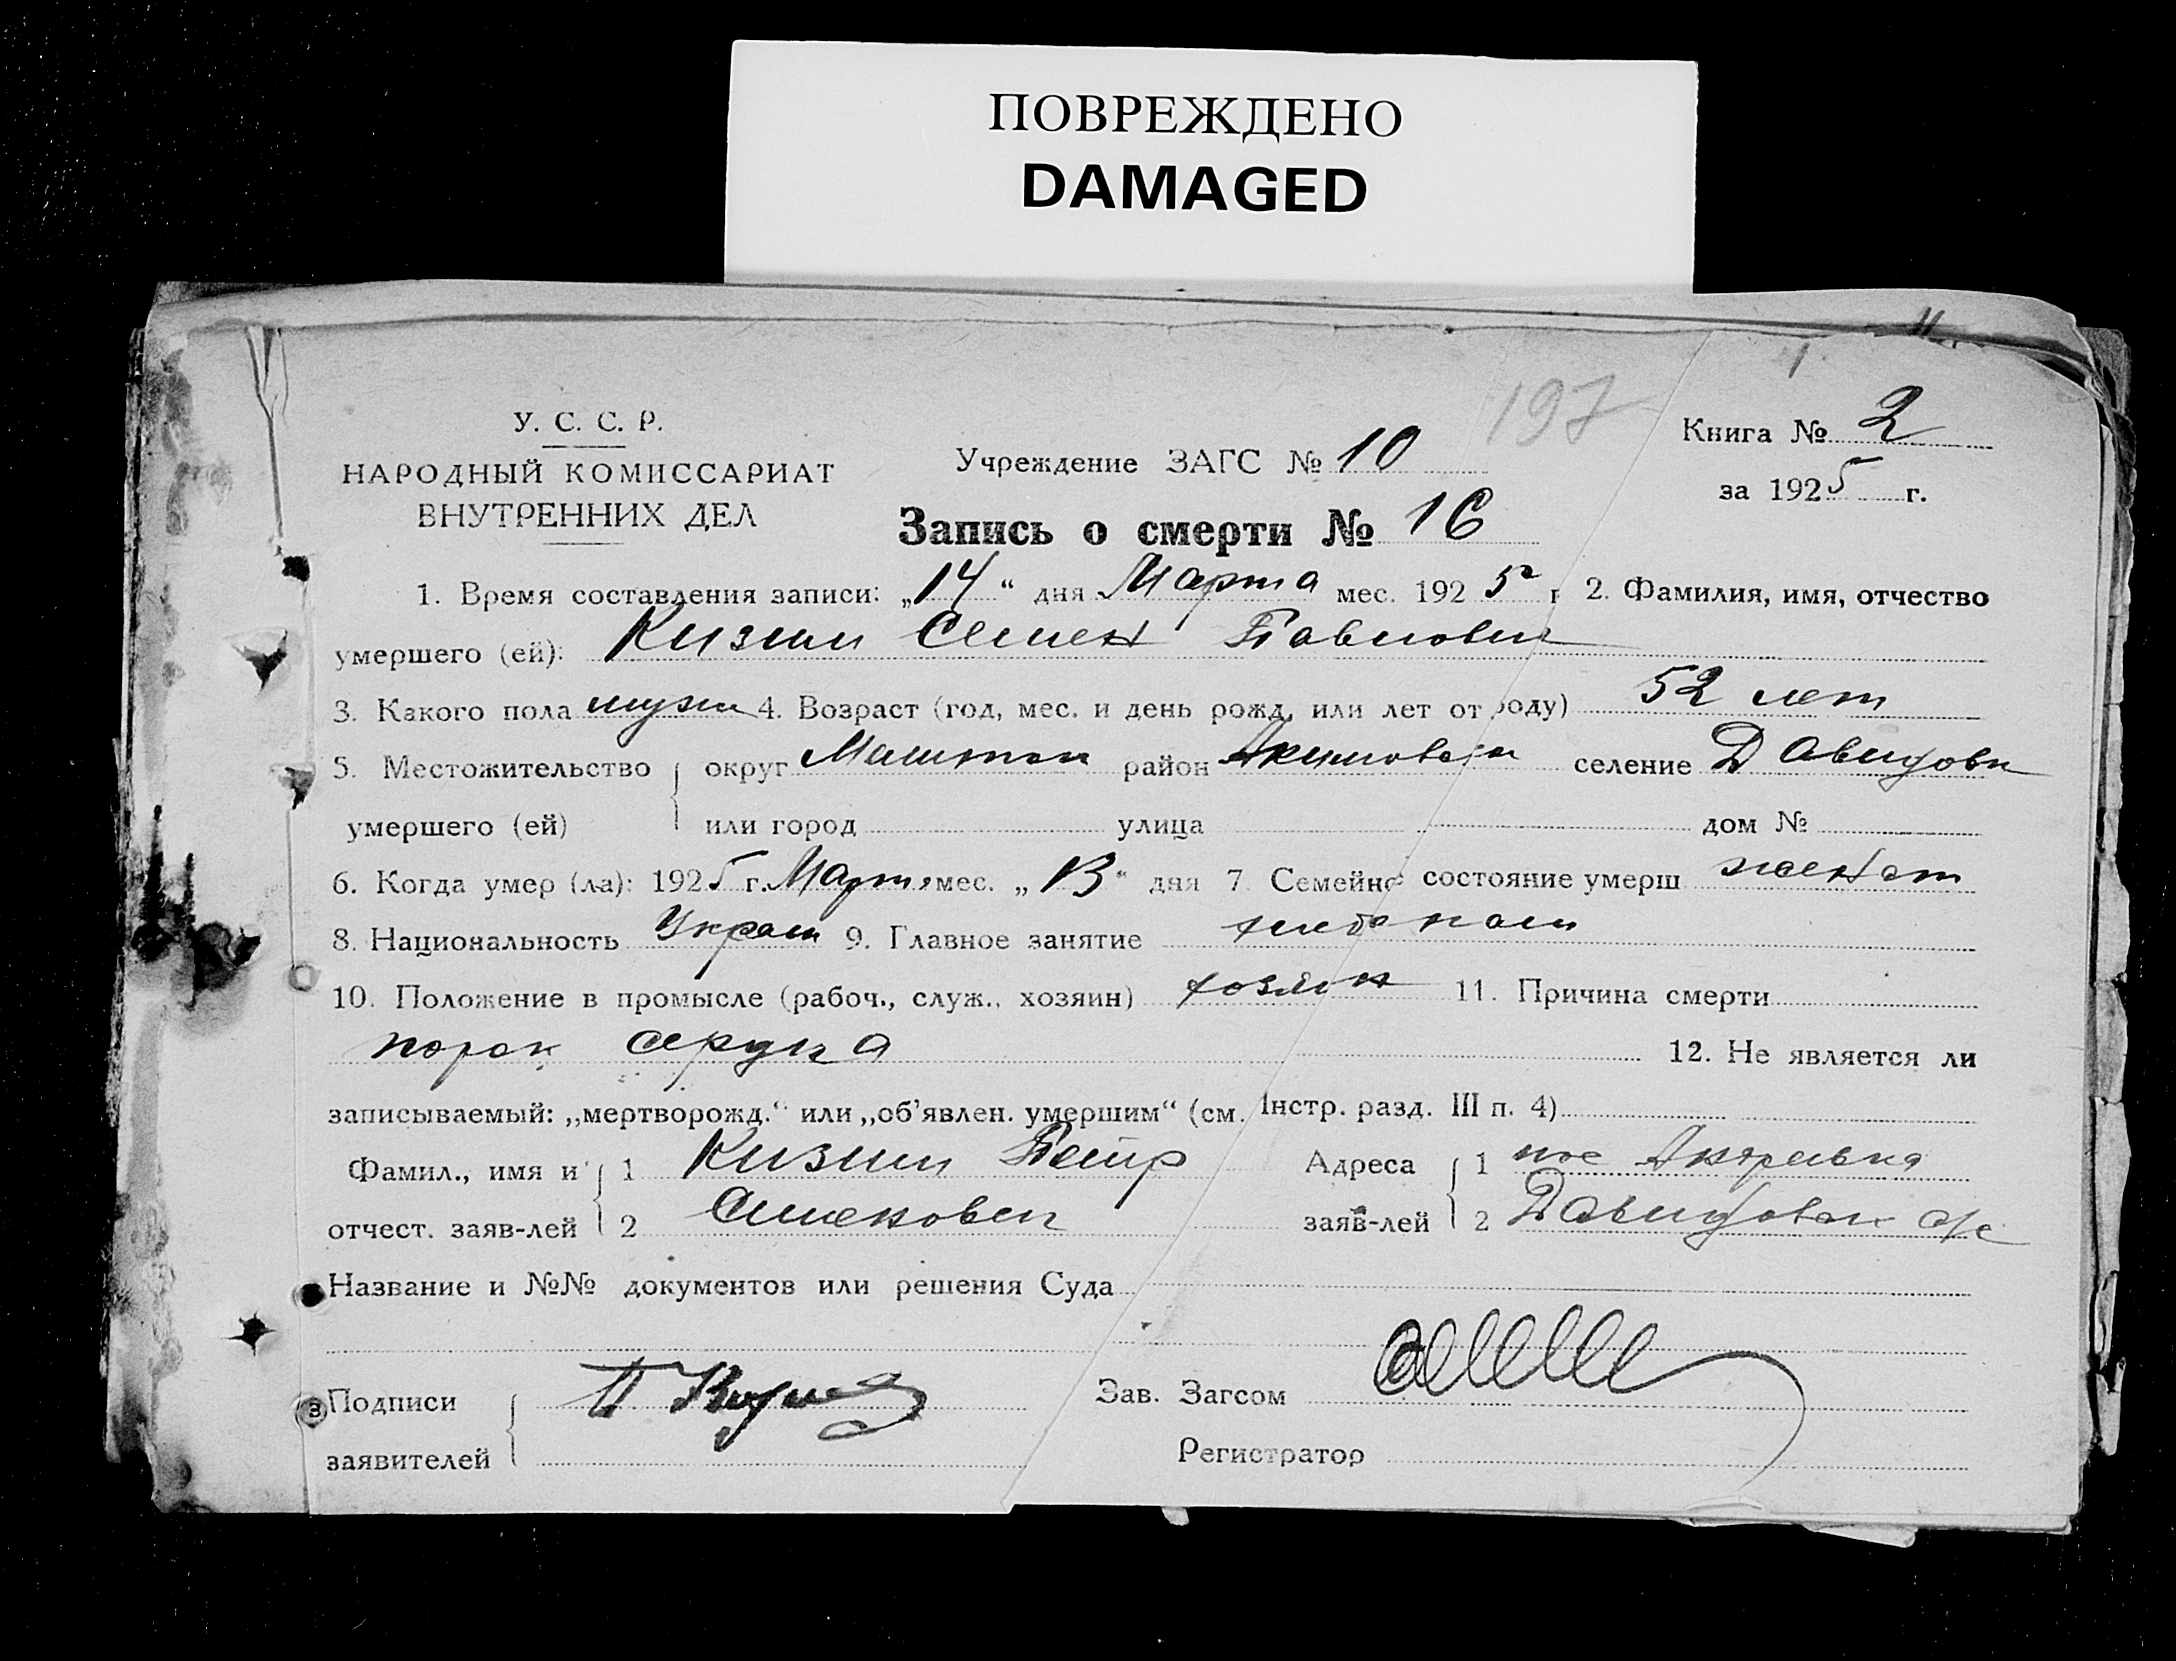 ПОВРЕЖДЕНО
DAMAGED
197
У. С. С. Р.
НАРОДНЫЙ КОМИССАРИАТ
ВНУТРЕННИХ ДЕЛ
Учреждение ЗАГС № 10
Книга № 2
за 1925 г.
Запись о смерти № 16
1. Время составления записи: „14“ дня Марта мес. 1925 г. 2. Фамилия, имя, отчество
умершего (ей): Кизим Семен Павлович
3. Какого пола мужм 4. Возраст (год, мес. и день рожд. или лет от роду) 52 лет
5. Местожительство округ район Акимовск селение Давидовк
умершего (ей) или город улица дом №
6. Когда умер (ла): 1925 г. Марта мес. „13“ дня 7. Семейное состояние умерш женат
8. Национальность Украин 9. Главное занятие хлебопаш
10. Положение в промысле (рабоч., служ., хозяин) хозяин 11. Причина смерти
порок сердца 12. Не является ли
записываемый: „мертворожд.“ или „об’явлен. умершим“ (см. Инстр. разд. III п. 4)
Фамил., имя и 1 Кизим Петр Адреса 1 пос
отчест. заяв-лей 2 Семенович заяв-лей 2 Давидовск с/с
Название и №№ документов или решения Суда
Подписи П Кизим Зав. Загсом
заявителей Регистратор